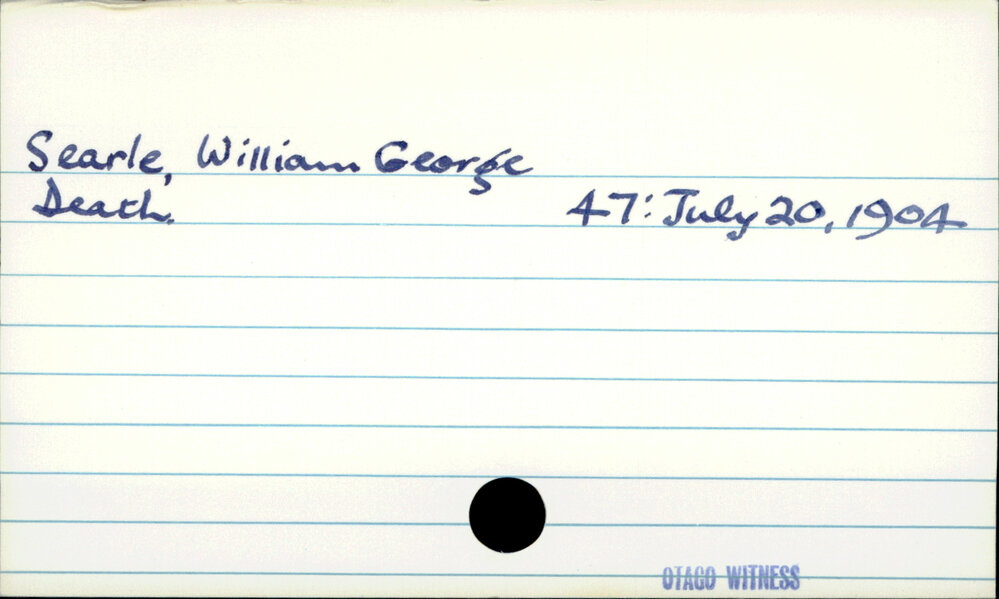 Searle, William George
Death. 47: July 20, 1904
OTAGO WITNESS